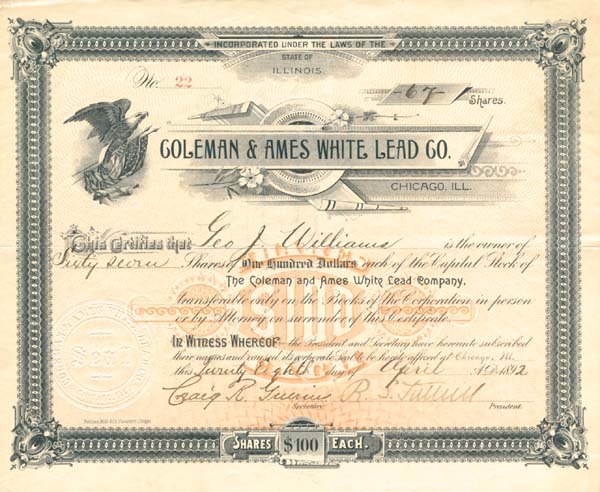 INCORPORATED UNDER THE LAWS OF THE
STATE OF
ILLINOIS.
No. 22
-67- Shares.
COLEMAN & AMES WHITE LEAD CO.
CHICAGO, ILL.
This Certifies that Geo J. Williams is the owner of
Sixty seven Shares of One Hundred Dollars each of the Capital Stock of
The Coleman and Ames White Lead Company,
transferable only on the Books of the Corporation in person
or by Attorney on surrender of this Certificate.
IN WITNESS WHEREOF the President and Secretary have hereunto subscribed
their names and caused its corporate Seal to be hereby affixed at Chicago, Ill.
this Twenty Eighth day of April A.D. 1892
Craig R.
R. S.
Secretary.
President.
SHARES $100 EACH.